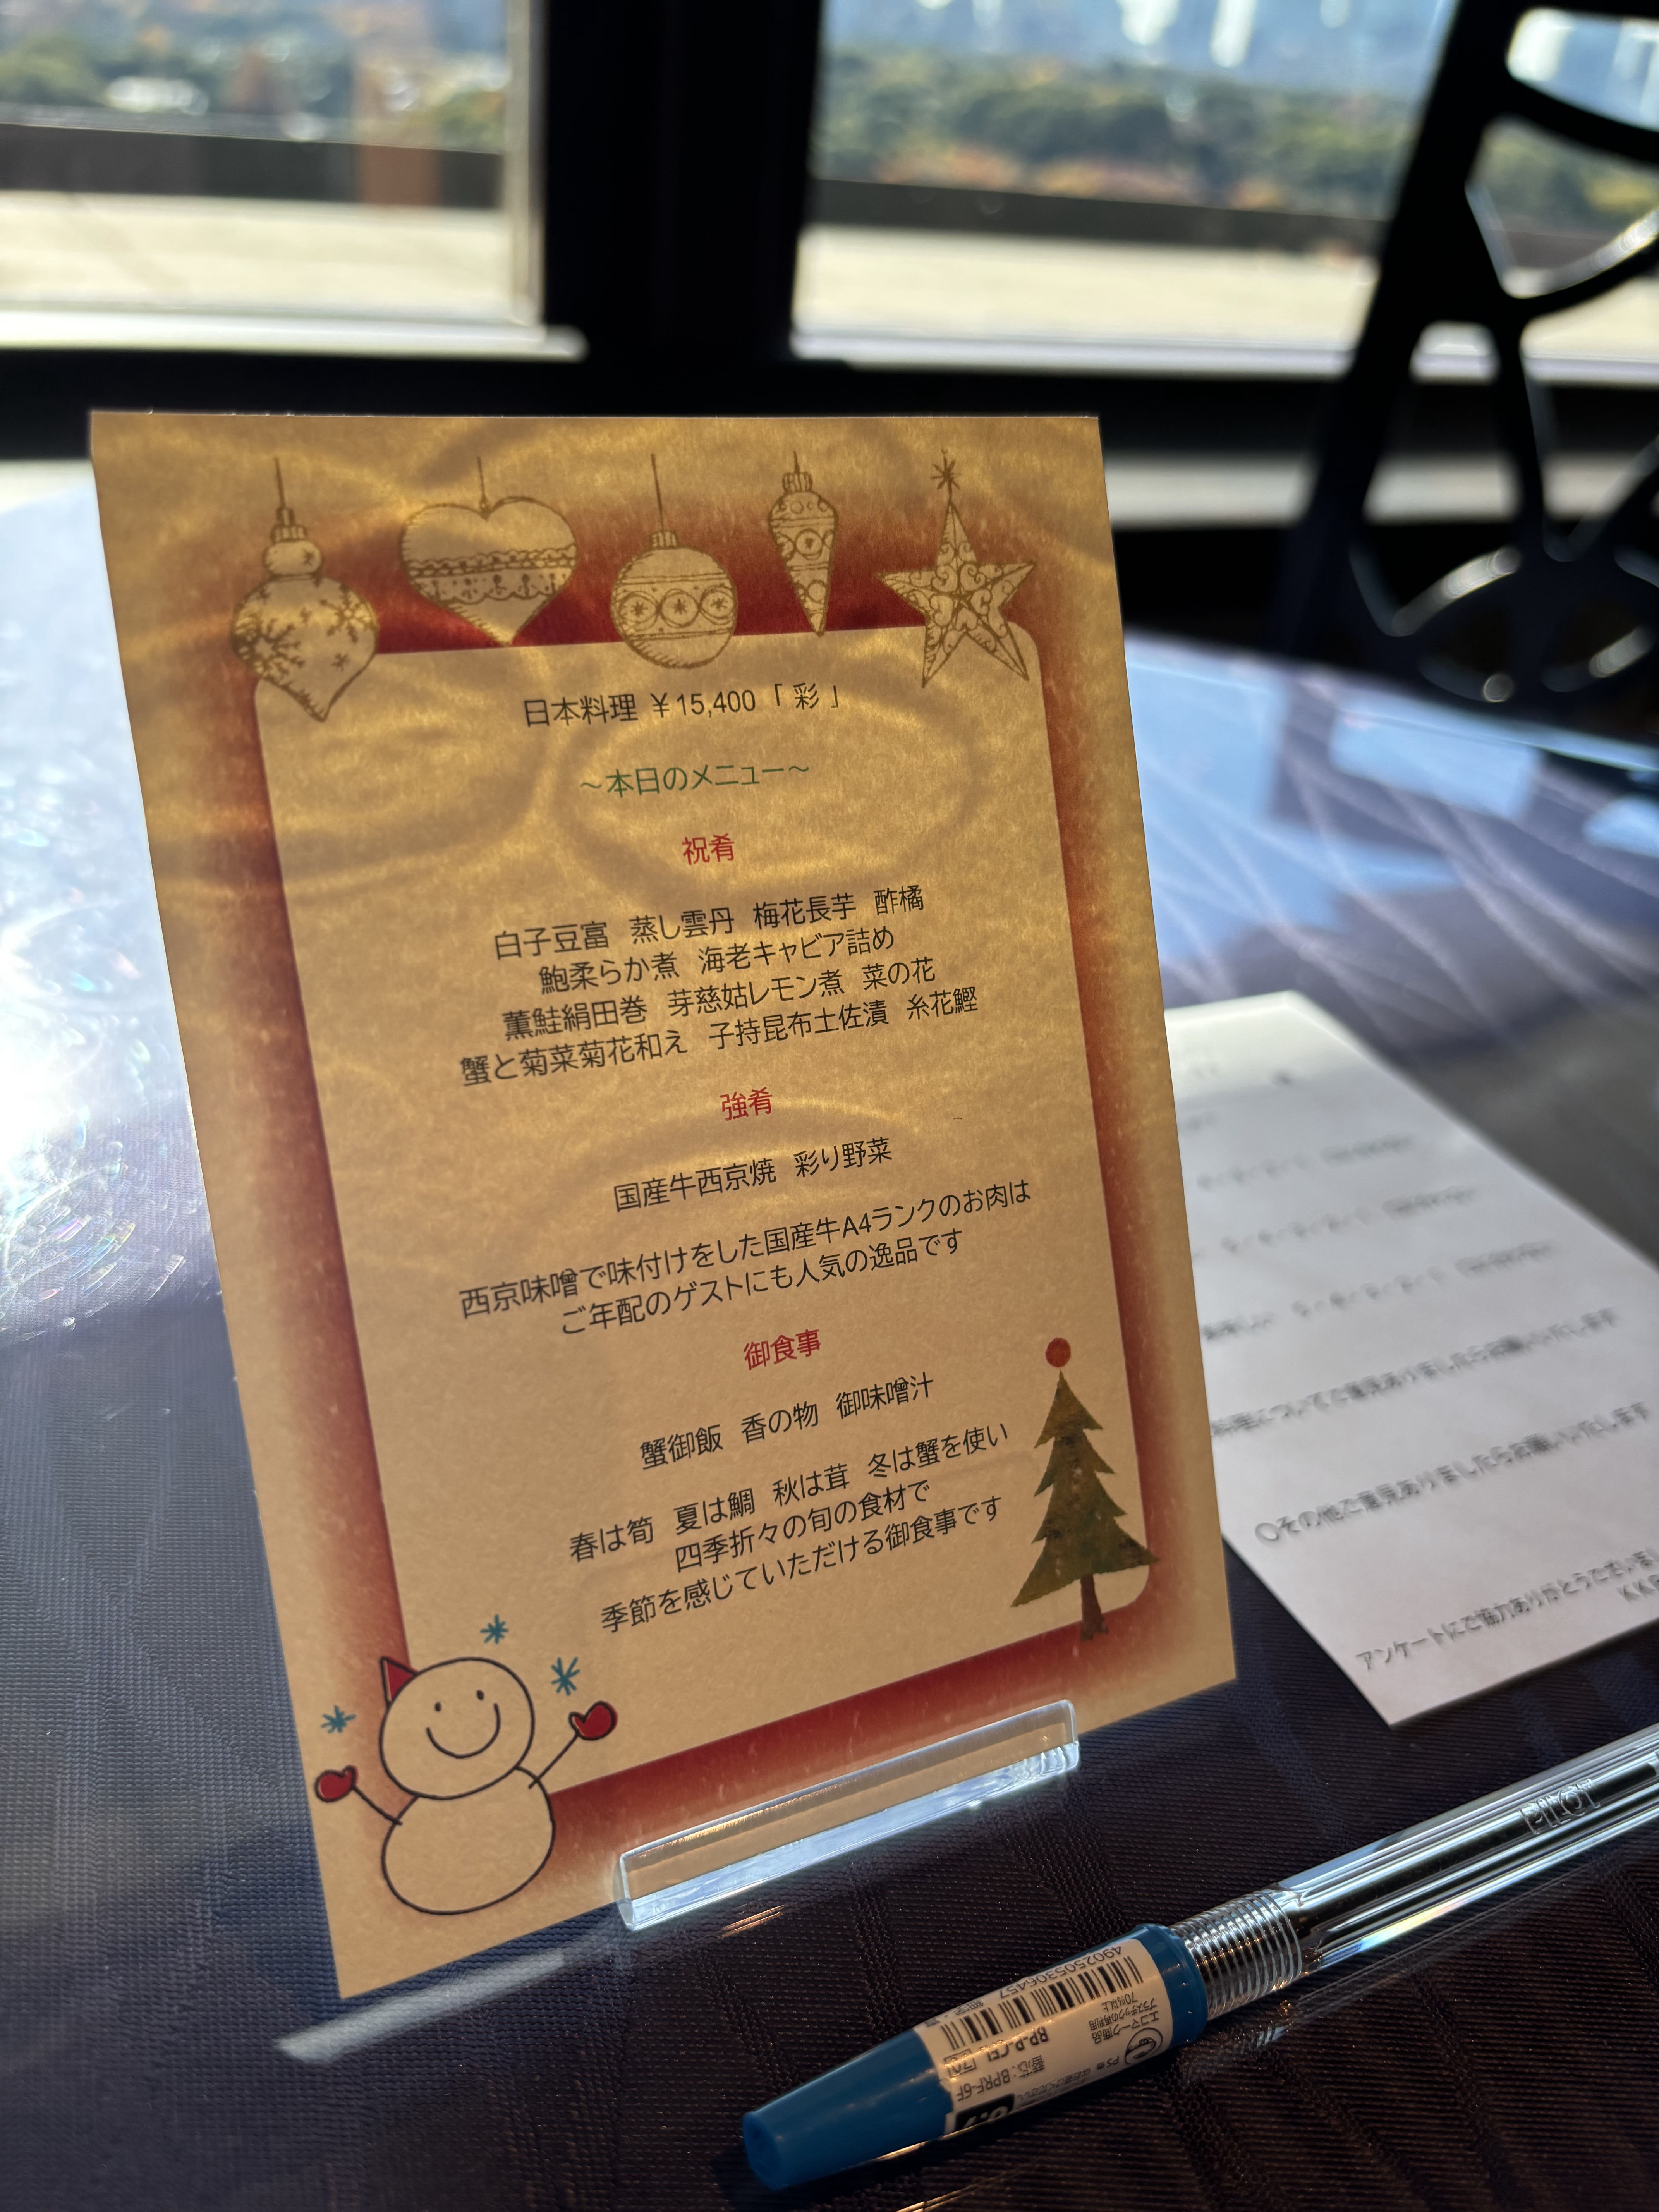 日本料理 ¥15,400「 彩 」
～本日のメニュー～
祝肴
白子豆富 蒸し雲丹 梅花長芋 酢橘
鮑柔らか煮 海老キャビア詰め
薫鮭絹田巻 芽慈姑レモン煮 菜の花
蟹と菊菜菊花和え 子持昆布土佐漬 糸花鰹
強肴
国産牛西京焼 彩り野菜
西京味噌で味付けをした国産牛A4ランクのお肉は
ご年配のゲストにも人気の逸品です
御食事
蟹御飯 香の物 御味噌汁
春は筍 夏は鯛 秋は茸 冬は蟹を使い
四季折々の旬の食材で
季節を感じていただける御食事です
料理についてご意見ありましたらお願いいたします
〇その他ご意見ありましたらお願いいたします
アンケートにご協力ありがとうございまし
KKR
PILOT
4902505306457
BP-R-CFL
替芯：BPRF-6F
エコマーク商品
プラスチックの再利用
70%以上
0.7